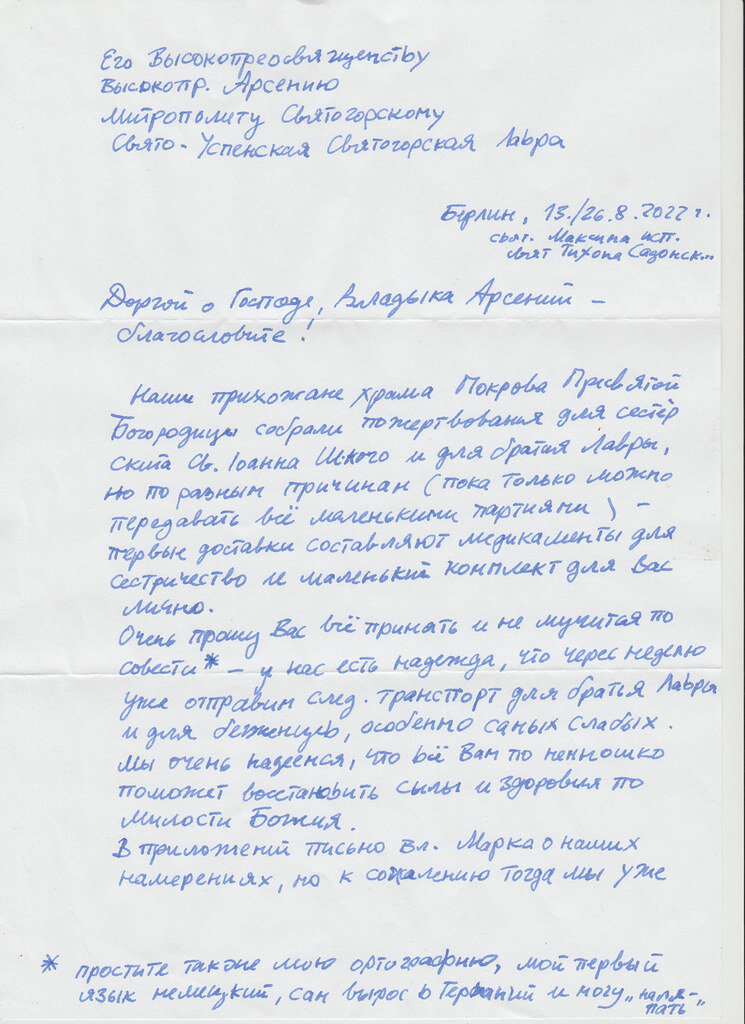 Его Высокопреосвященству
Высокопр. Арсению
Митрополиту Святогорскому
Свято-Успенская Святогорская Лавра
Берлин, 13./26.8.2022 г.
свят. Максима исп.
свят Тихона Садонск...
Доргой о Господе, Владыка Арсений –
благословите!
Наши прихожане храма Покрова Пресвятой
Богородицы собрали пожертвования для сестёр
скита Св. Іоанна и для братия Лавры,
но по разным причинам (пока только можно
передавать всё маленькими партиями) –
первые доставки составляют медикаменты для
сестричество и маленький комплект для Вас
лично.
Очень прошу Вас всё принять и не мучится по
совести* – у нас есть надежда, что через неделю
уже отправим след. транспорт для братья Лавры
и для беженцев, особенно самых слабых.
Мы очень надеемся, что всё Вам по немношко
поможет восстановить силы и здоровия по
Милости Божия.
В приложений письмо Вл. Марка о наших
намерениях, но к сожалению тогда мы уже
* простите также мою ортографию, мой первый
язык немецкий, сам вырос в Германий и могу „наля-
пать"